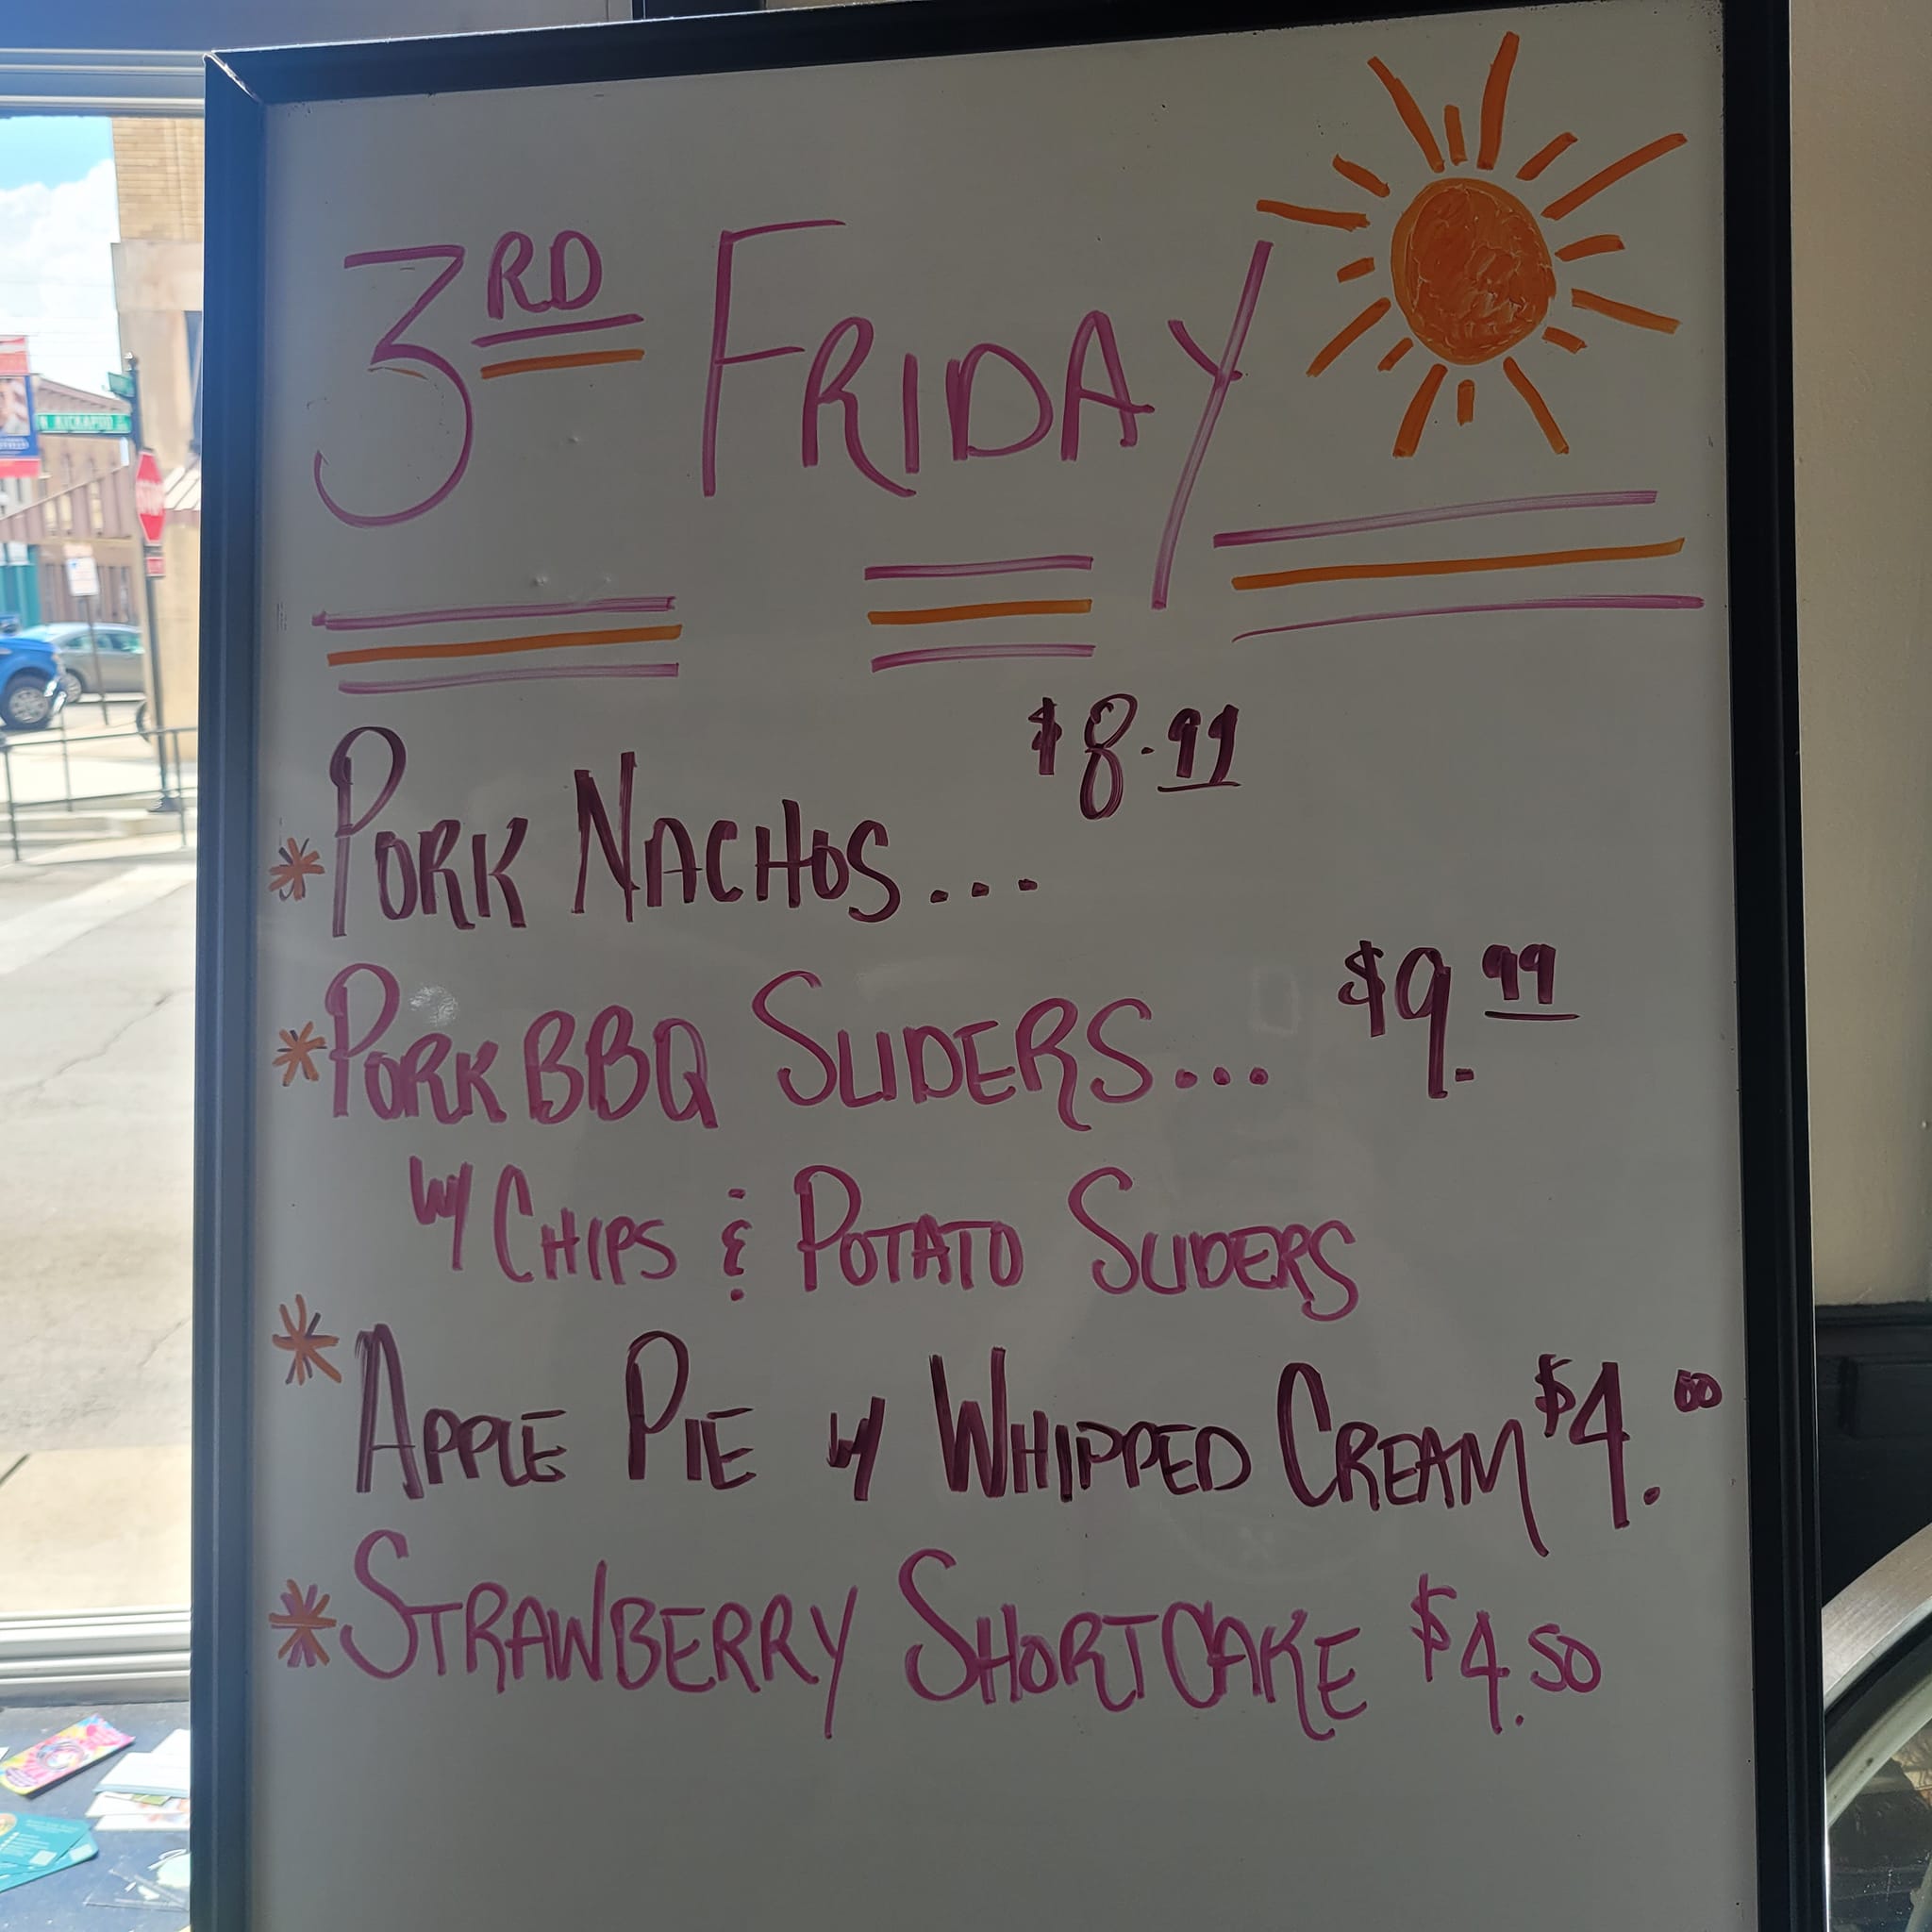 3RD FRIDAY
* PORK NACHOS... $8.99
* PORK BBQ SLIDERS... $9.99
W/ CHIPS & POTATO SLIDERS
* APPLE PIE W/ WHIPPED CREAM $4.00
* STRAWBERRY SHORTCAKE $4.50
N KICKAPOO